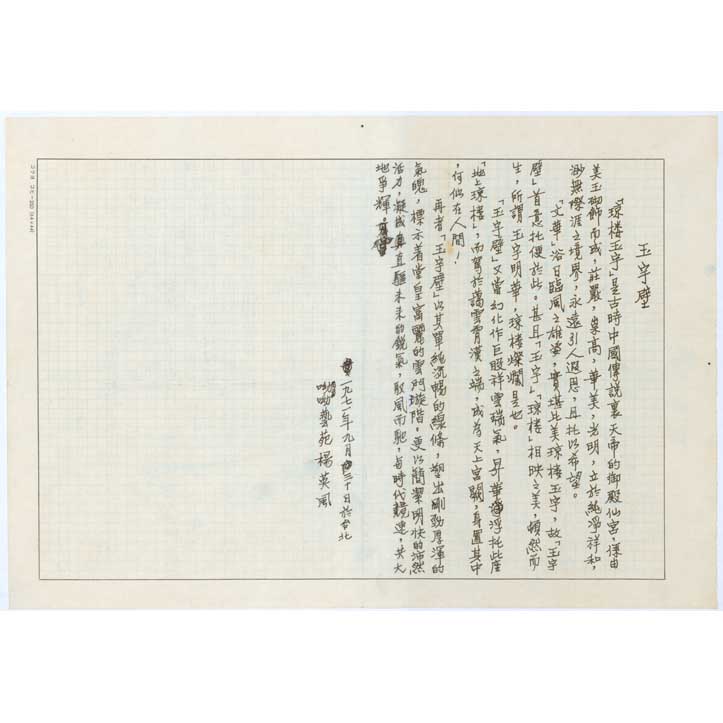 玉宇壁
「瓊楼玉宇」是古時中國傳説裏天帝的御殿仙宮，係由
美玉砌飾而成，莊嚴，崇高，華美，光明，立於純淨祥和，
渺無際涯之境界，永遠引人遐思，且托以希望。
「文華」浴日臨風之雄姿，實堪比美瓊楼玉宇，故「玉宇
壁」首意托便於此。甚且「玉宇」「瓊楼」相映之美，頓然而
生，所謂玉宇明華，瓊楼燦爛是也。
「玉宇壁」又當幻化作巨股祥雲瑞氣，昇華浮托此座
「地上瓊楼」，而駕於藹雲霄漢之端，成為天上宮闕，身置其中
，何似在人間！
再者「玉宇壁」以其單純流暢的線條，塑出剛勁厚渾的
氣魄，標示着堂皇富麗的雲門璇階。更以簡潔明快的沛然
活力，凝成直驅未來的銳氣，馭風而馳，与時代競進，共天
地爭輝。
一九七一年九月三十日於台北
呦呦藝苑楊英風